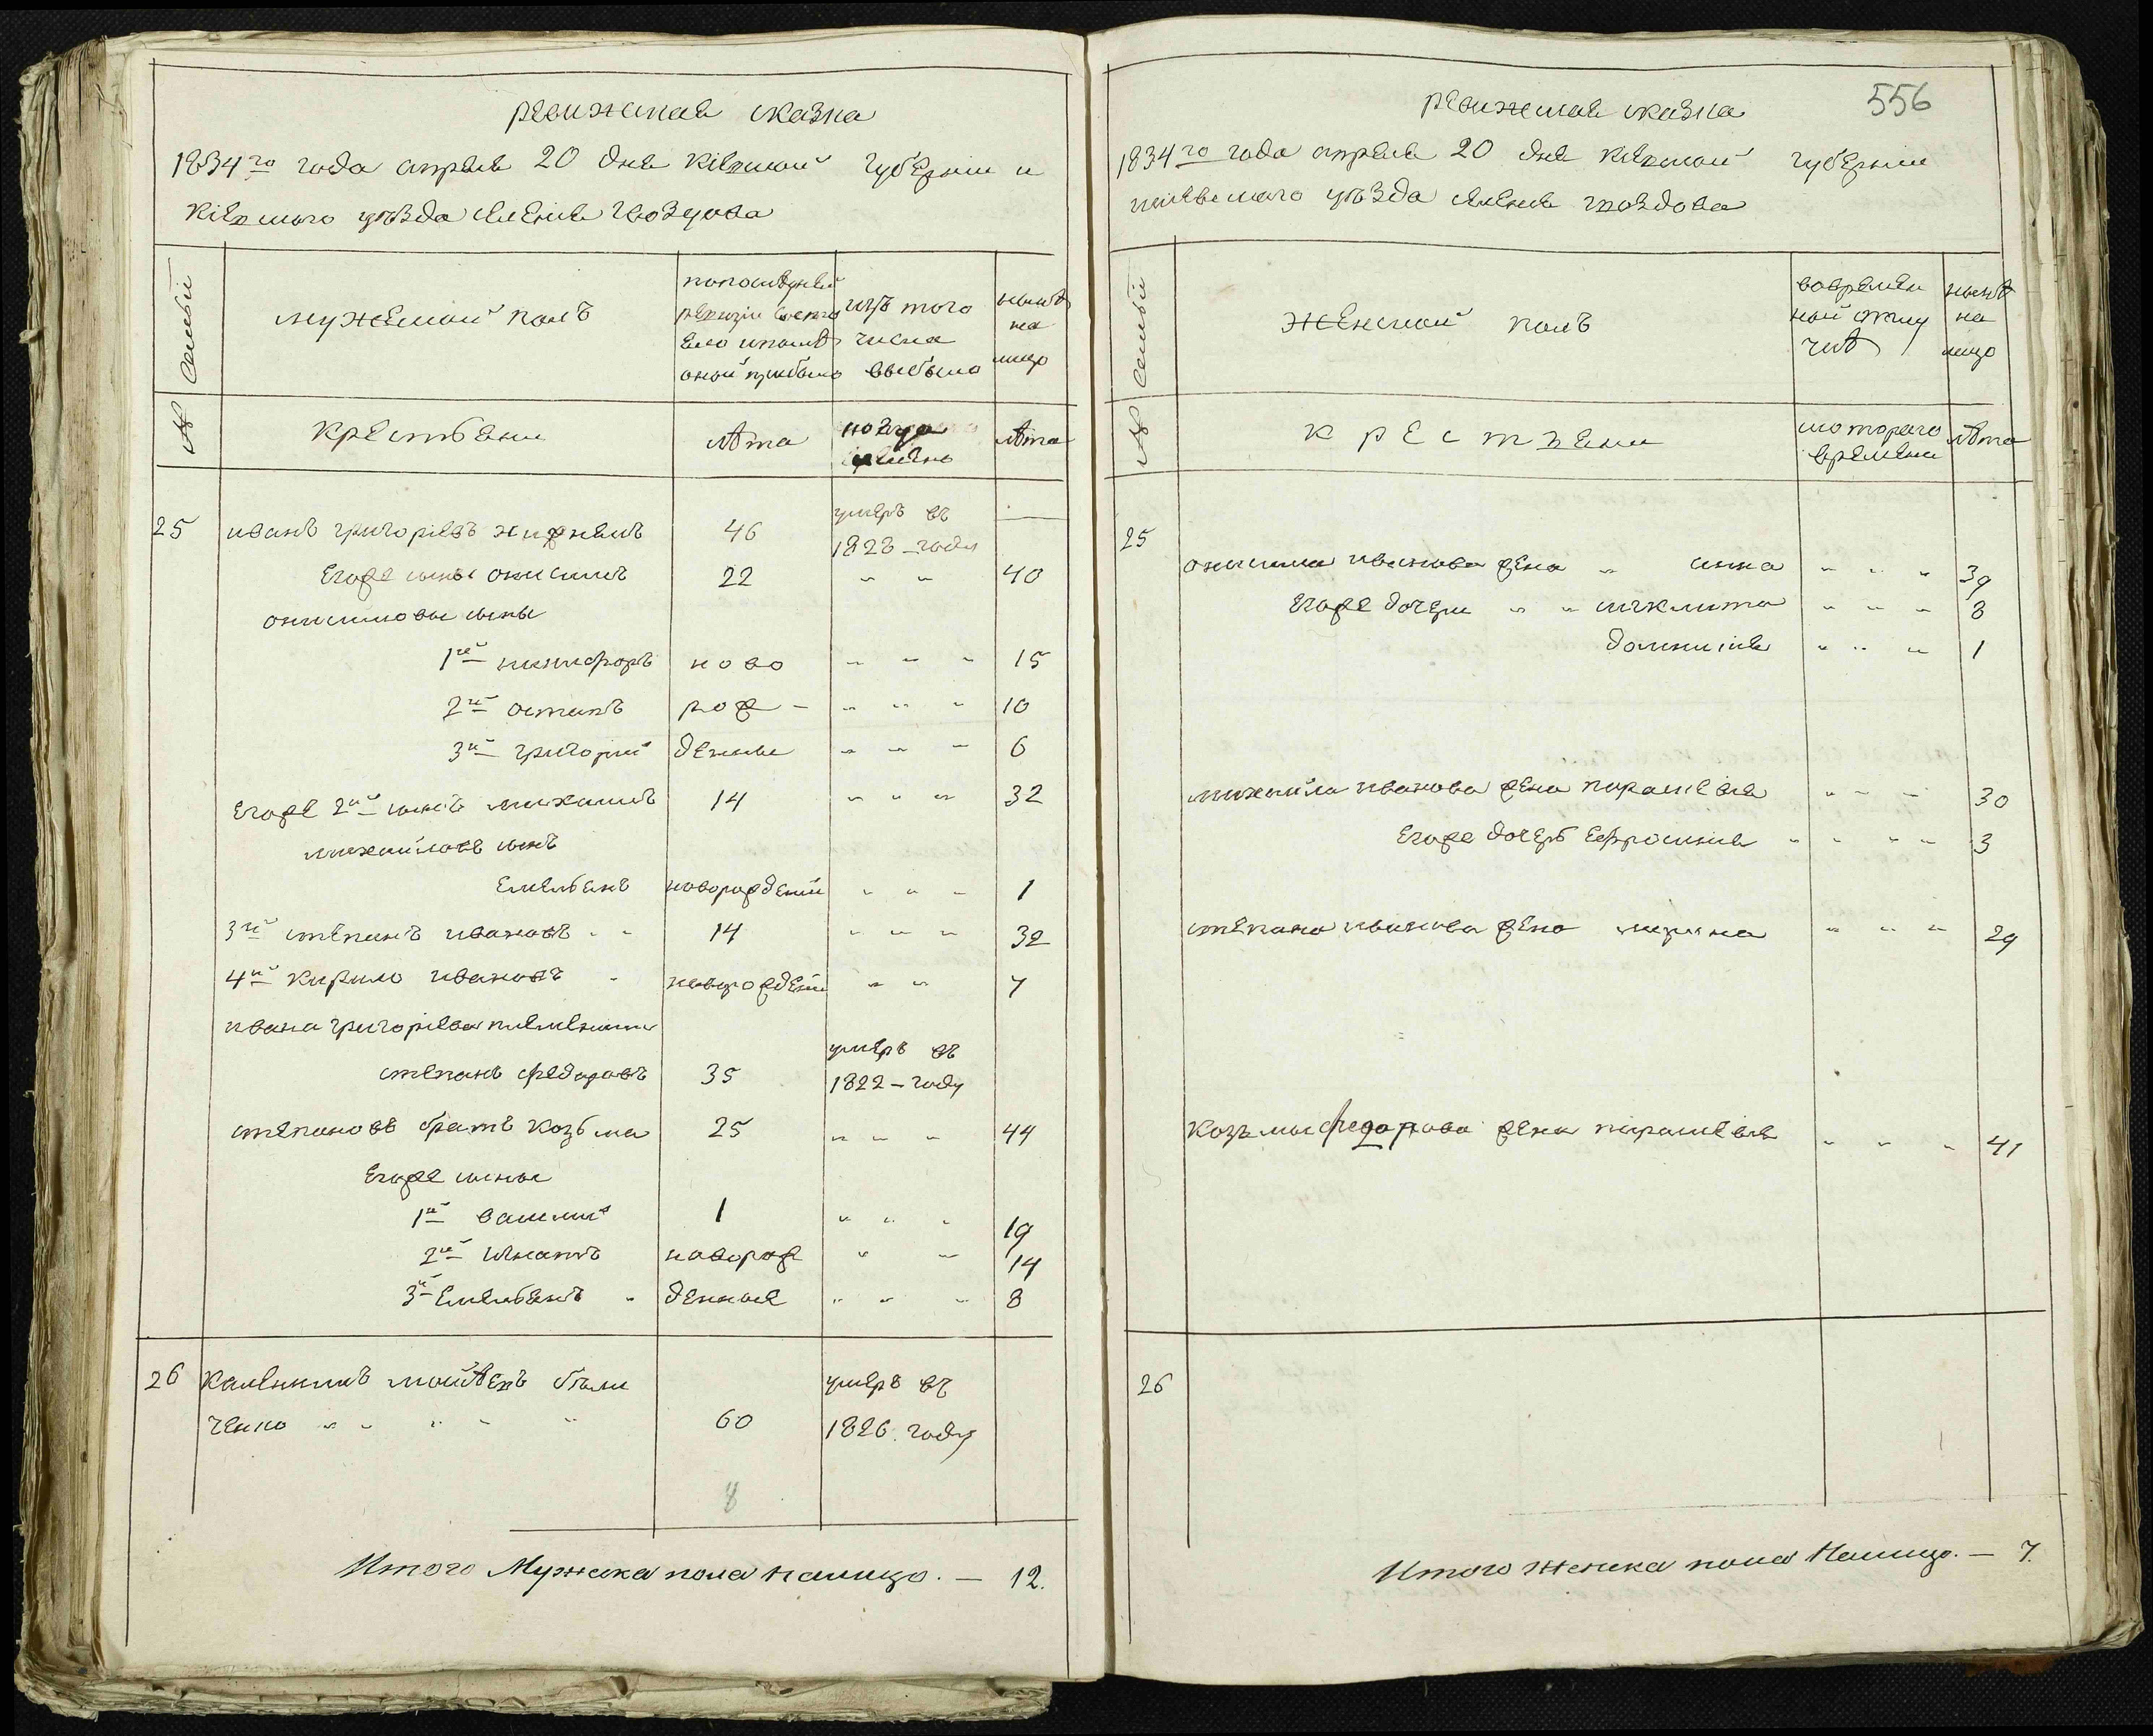 ревижская сказка
1834го года апреля 20 дня Кіевской губерніи и
Кіевского уѣзда селенія Гвоздова
семьи
мужеской полъ
попослѣдней
ревизіи состо
яло ипослѣ
оной прибыло
изъ того
числа
выбыло
нынѣ
на
лицо
№
Крестьяни
лѣта
когда
лѣта
25 иванъ григоріевъ 46 умеръ въ
1823 году
Егоже сынъ онисимъ 22 " " 40
онисимовы сыны
1й никифоръ ново " " " 15
2й остапъ рож - " " " 10
3й григорий денные " " " 6
Егоже 2й сынъ михаилъ 14 " " " 32
михайловъ сынъ
Емельянъ новорожденій " " " 1
3й степанъ ивановъ " " 14 " " " 32
4й кирило ивановъ " новорожденій " " 7
ивана григоріева племянники
степанъ федоровъ 35 умеръ въ
1822 - году
степановъ братъ козьма 25 " " " 44
Егоже сыны
1й василий 1 " " " 19
2й игнатъ새 новорож " " 14
3й Емельянъ " денные " " " 8
26 Каленикъ мойсѣевъ бѣли
ченко " " " " " 60 умеръ въ
1826 году
8
Итого Мужеска пола налицо. — 12.
556
ревижская сказка
1834го года апреля 20 дня Кіевской губерніи
кіевского уѣзда селенія гвоздова
семьи
женской полъ
вовремен
ной отлу
чкѣ
нынѣ
на
лицо
№
крестьяни
скоторого
времени
лѣта
25
онисима иванова жена " анна " " " 39
Егоже дочери " " " " " 8
домникія " " " 1
михайла иванова жена параскевія " " " 30
Егоже дочерь Ефросинія " " " " 3
степана иванова жена марина " " " 29
козьмы федорова жена параскевія " " " 41
26
Итого женска пола Налицо. — 7.